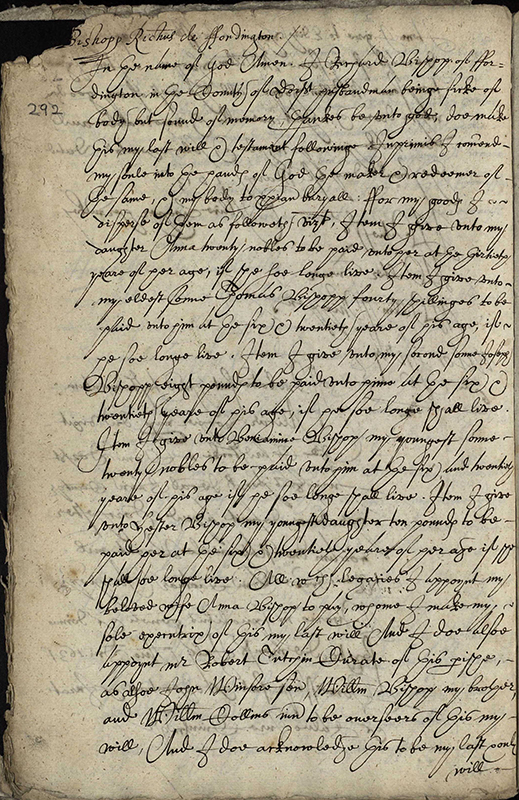 Bishopp Richus de ffordington
292
In the name of God Amen. I Richard Bisopp of ffor-
dington in the County of Dorst husbandman beinge sicke of
body but sound of memory thankes be unto god, doe make
this my last will & testament followinge Inprimis I comend
my soule into the hands of God the maker & redeemer of
the same, & my body to xpian buryall: ffor my goods I
disperse of them as followeth, vizt, Item I give unto my
daughter Anna twenty nobles to be paid unto her at the
yeare of her age, if she soe longe live. Item I give unto
my eldest sonne Thomas Bisopp fourty shillinges to be
paid unto him at the six & twentieth yeare of his age, if
he soe longe live. Item I give unto my second sonne Joseph
Bisopp eight pounds to be paid unto him at the six &
twentieth yeare of his age, if he soe longe shall live.
Item I give unto Beniamine Bisopp my youngest sonne
twenty nobles to be paid unto him at the six and twentieth
yeare of his age if he soe longe shall live. Item I give
unto Hester Bisopp my youngest daughter ten pounds to be
paid her at the six & twentieth yeare of her age if she
shall soe longe live. All wch legacies I appoint my
beloved wife Anna Bisopp to pay, whome I make my
sole executrix of this my last will And I doe alsoe
appoint mr Robert Curate of this pishe,
as alsoe John sen, Willm Bisopp my brother,
and Willm Collins iun to be overseers of this my
will, And I doe acknowledge this to be my last
will